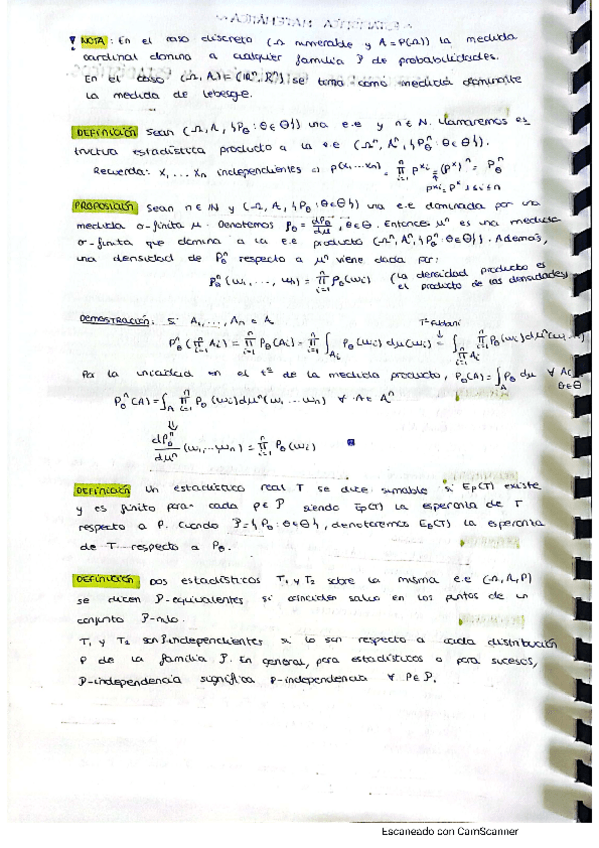 ! NOTA: En el caso discreto (Ω numerable y A=P(Ω)) la medida
cardinal domina a cualquier familia P de probabilidades.
En el caso (Ω, A) = (ℝⁿ, Rⁿ) se toma como medida dominante
la medida de Lebesge.
DEFINICIÓN Sean (Ω, A, {Pθ: θ∈Θ}) una e.e y n∈ℕ. Llamaremos es
tructura estadística producto a la e.e (Ωⁿ, Aⁿ, {Pθⁿ: θ∈Θ}).
Recuerda: X₁ ... Xₙ independientes ⇒ P(X₁...Xₙ) = ∏ᵢ₌₁ⁿ P^Xᵢ = (P^X)ⁿ = Pθⁿ
P^Xᵢ = P^X ∀ i≤n
PROPOSICIÓN Sean n∈ℕ y (Ω, A, {Pθ: θ∈Θ}) una e.e dominada por una
medida σ-finita μ. Denotemos pθ = dPθ/dμ, θ∈Θ. Entonces μⁿ es una medida
σ-finita que domina a la e.e producto (Ωⁿ, Aⁿ, {Pθⁿ: θ∈Θ}). Además,
una densidad de Pθⁿ respecto a μⁿ viene dada por:
pθⁿ(ω₁, ..., ωₙ) = ∏ᵢ₌₁ⁿ pθ(ωᵢ) (la densidad producto es
el producto de las densidades)
DEMOSTRACIÓN: Si A₁, ..., Aₙ ∈ A
Tª Fubini
Pθⁿ(∏ᵢ₌₁ⁿ Aᵢ) = ∏ᵢ₌₁ⁿ Pθ(Aᵢ) = ∏ᵢ₌₁ⁿ ∫_Aᵢ pθ(ωᵢ) dμ(ωᵢ) = ∫_∏ᵢ₌₁ⁿ Aᵢ ∏ᵢ₌₁ⁿ pθ(ωᵢ) dμⁿ(ω₁...
Por la unicidad en el tª de la medida producto, Pθ(A) = ∫_A pθ dμ ∀ A∈
θ∈Θ
Pθⁿ(A) = ∫_A ∏ᵢ₌₁ⁿ pθ(ωᵢ) dμⁿ(ω₁...ωₙ) ∀ A∈Aⁿ
⇓
dPθⁿ/dμⁿ (ω₁...ωₙ) = ∏ᵢ₌₁ⁿ pθ(ωᵢ)
DEFINICIÓN Un estadístico real T se dice sumable si E_P(T) existe
y es finito para cada P∈P siendo E_P(T) la esperanza de T
respecto a P. Cuando P={Pθ: θ∈Θ}, denotaremos Eθ(T) la esperanza
de T respecto a Pθ.
DEFINICIÓN Dos estadísticos T₁ y T₂ sobre la misma e.e (Ω, A, P)
se dicen P-equivalentes si coinciden salvo en los puntos de un
conjunto P-nulo.
T₁ y T₂ son P-independientes si lo son respecto a cada distribución
P de la familia P. En general, para estadísticos o para sucesos,
P-independencia significa P-independencia ∀ P∈P.
Escaneado con CamScanner